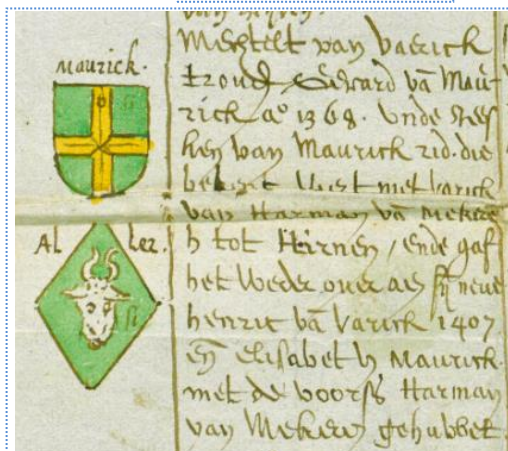 Maurick.
Al ler.
van heyen.
Mechtelt van Vaerick
troud Gerard vā Mau-
rick aº 1368. Unde Stes
hen van Maurick rid. die
belent met Varick
van Harman vā Mekere
h tot Hirnen, ende gaf
het weder over aēs sȳ neue
henric vā Varick 1407
eñ Elisabet h Maurick.
met de voorſs Harman
van Mekeren gehubbet